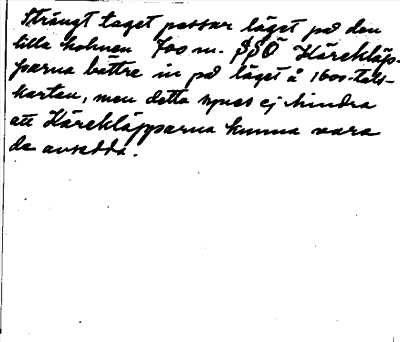 Strängt taget passar läget på den
lilla holmen 700 m. SSO Härekläpp-
parna bättre in på läget å 1600-tals-
kartan, men detta synes ej hindra
att Härekläpparna kunna vara
de avsedda.